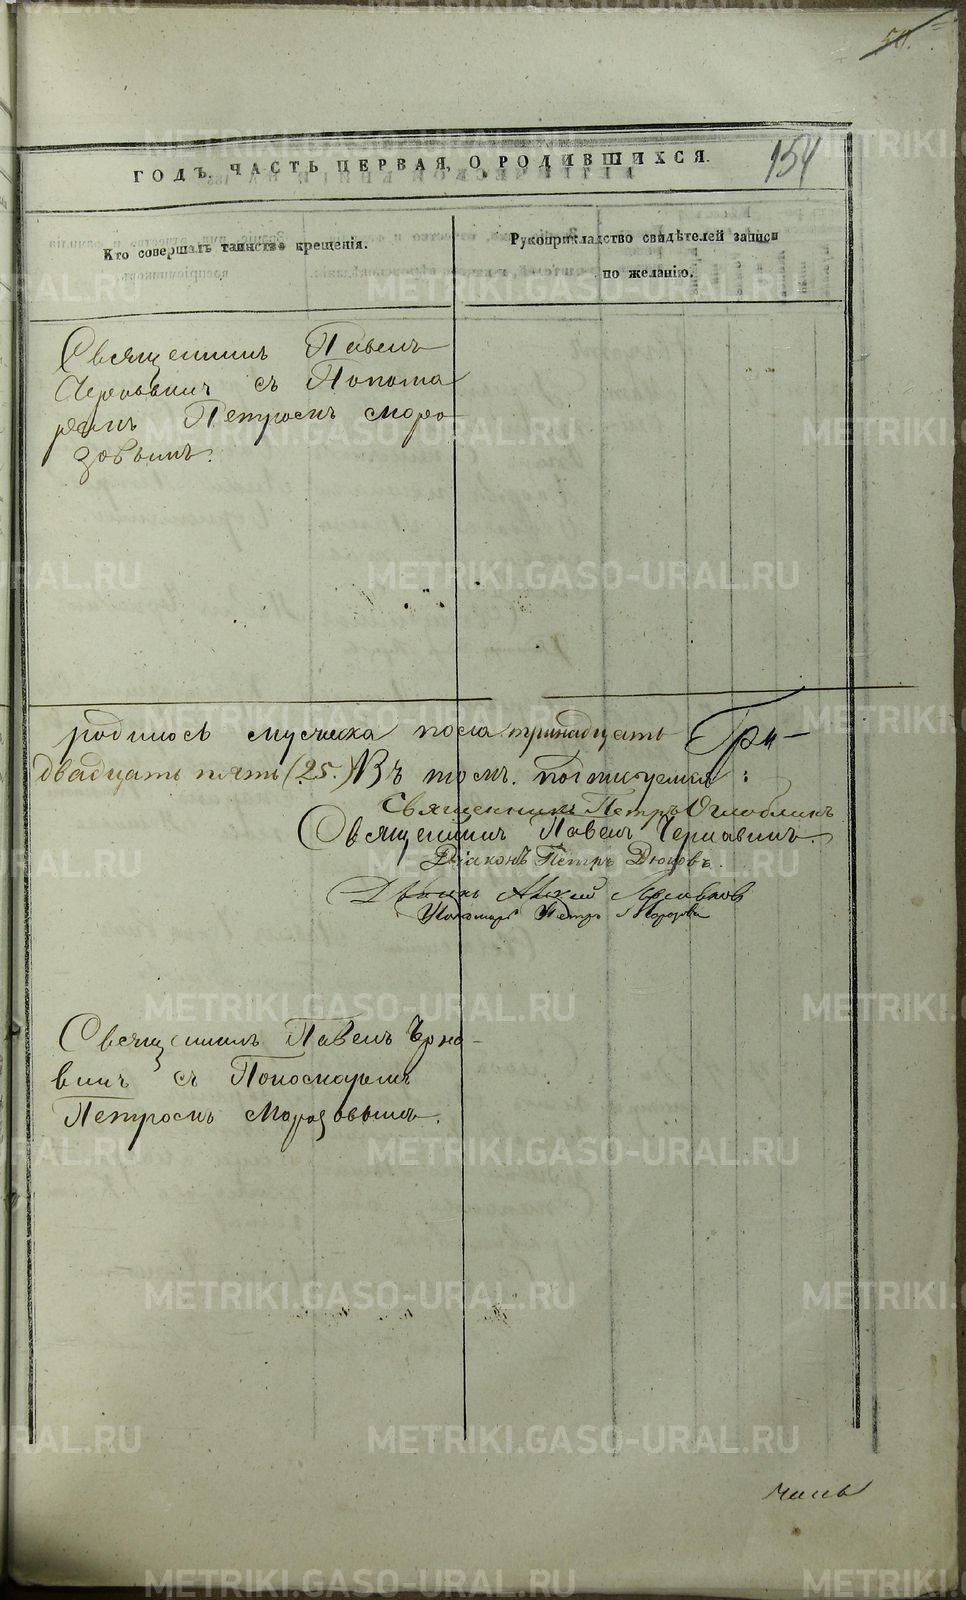 50.
154
ГОДЪ. ЧАСТЬ ПЕРВАЯ, О РОДИВШИХСЯ.
Кто совершалъ таинство крещенія.
Рукоприкладство свидѣтелей записи
по желанію.
Священникъ Павелъ
Чернавинъ съ Понома
ремъ Петромъ Моро
зовымъ.
родилось мужеска пола тринадцать
двадцать пять (25.) Въ томъ подписуемся:
Священникъ Петръ Оглоблинъ
Священникъ Павелъ Чернавинъ.
Діаконъ Петръ Дюковъ.
Пономарь Петръ Морозовъ
Священникъ Павелъ Черна-
винъ съ Пономаремъ
Петромъ Морозовымъ.
METRIKI.GASO-URAL.RU